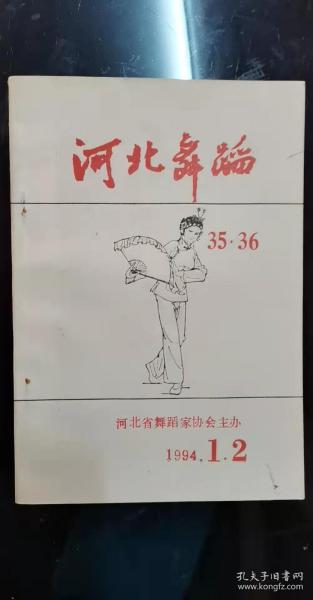 河北舞蹈
35·36
河北省舞蹈家协会主办
1994.1.2
孔夫子旧书网
www.kongfz.com